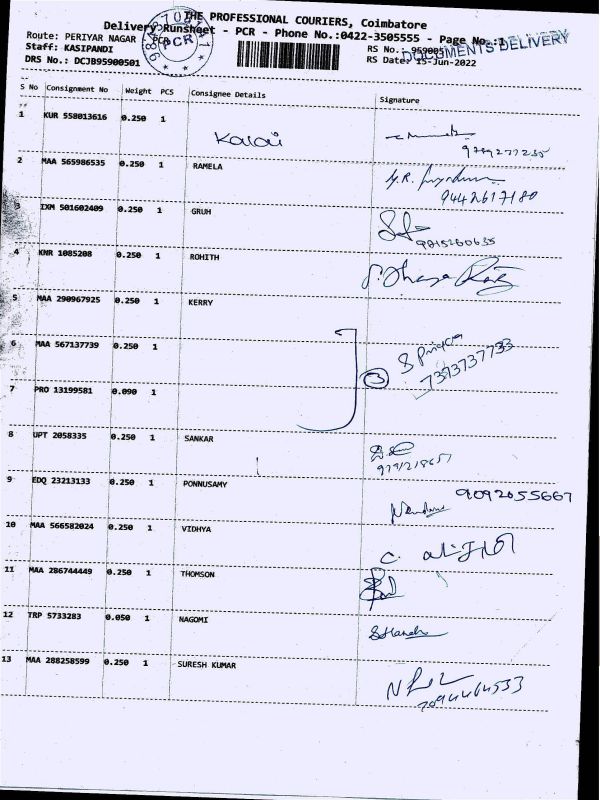 THE PROFESSIONAL COURIERS, Coimbatore
Delivery Runsheet - PCR - Phone No.:0422-3505555 - Page No.:1
DOCUMENTS DELIVERY
Route: PERIYAR NAGAR - PCR
PCR
RS No.: 959005
Staff: KASIPANDI
RS Date: 15-Jun-2022
DRS No.: DCJB95900501
S No Consignment No Weight PCS Consignee Details Signature
1 KUR 558013616 0.250 1 Kalai
2 MAA 565986535 0.250 1 RAMELA
9442617180
3 IXM 501602409 0.250 1 GRUH
9015260635
4 KNR 1085208 0.250 1 ROHITH
5 MAA 290967925 0.250 1 KERRY
6 MAA 567137739 0.250 1
3 S Priya
7373737733
7 PRO 13199581 0.090 1
8 UPT 2058335 0.250 1 SANKAR
9 EDQ 23213133 0.250 1 PONNUSAMY
9092055667
10 MAA 566582024 0.250 1 VIDHYA
11 MAA 286744449 0.250 1 THOMSON
12 TRP 5733283 0.050 1 NAGOMI
13 MAA 288258599 0.250 1 SURESH KUMAR
7094464533